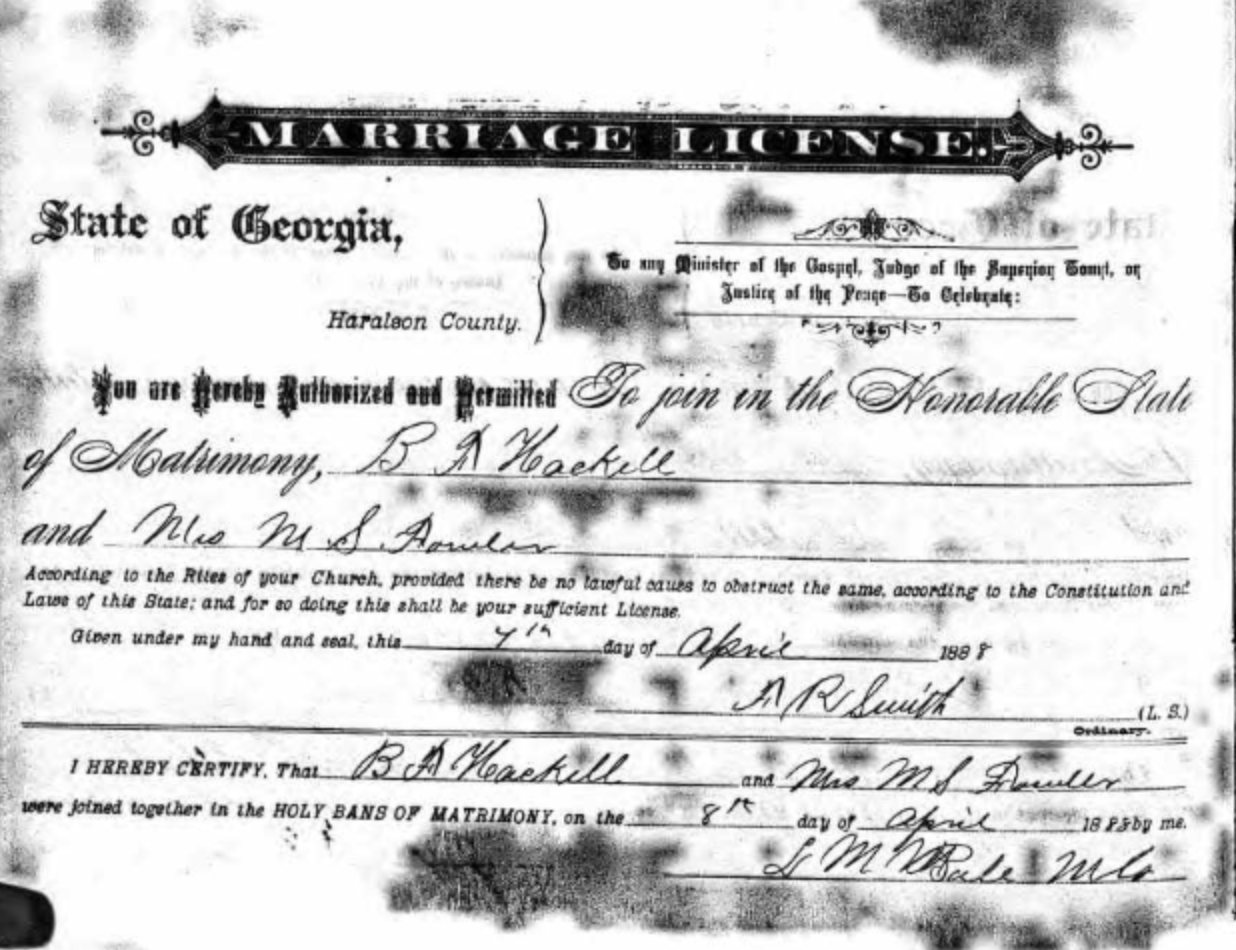 MARRIAGE LICENSE.
State of Georgia,
Haralson County.
To any Minister of the Gospel, Judge of the Superior Court, or
Justice of the Peace—To Celebrate:
You are Hereby Authorized and Permitted To join in the Honorable State
of Matrimony, B A Hackell
and Mrs M S Fowler
According to the Rites of your Church, provided there be no lawful cause to obstruct the same, according to the Constitution and
Laws of this State; and for so doing this shall be your sufficient License.
Given under my hand and seal, this 7th day of April 1888
A R Smith (L. S.)
Ordinary.
I HEREBY CERTIFY, That B A Hackell and Mrs M S Fowler
were joined together in the HOLY BANS OF MATRIMONY, on the 8th day of April 1888 by me.
M